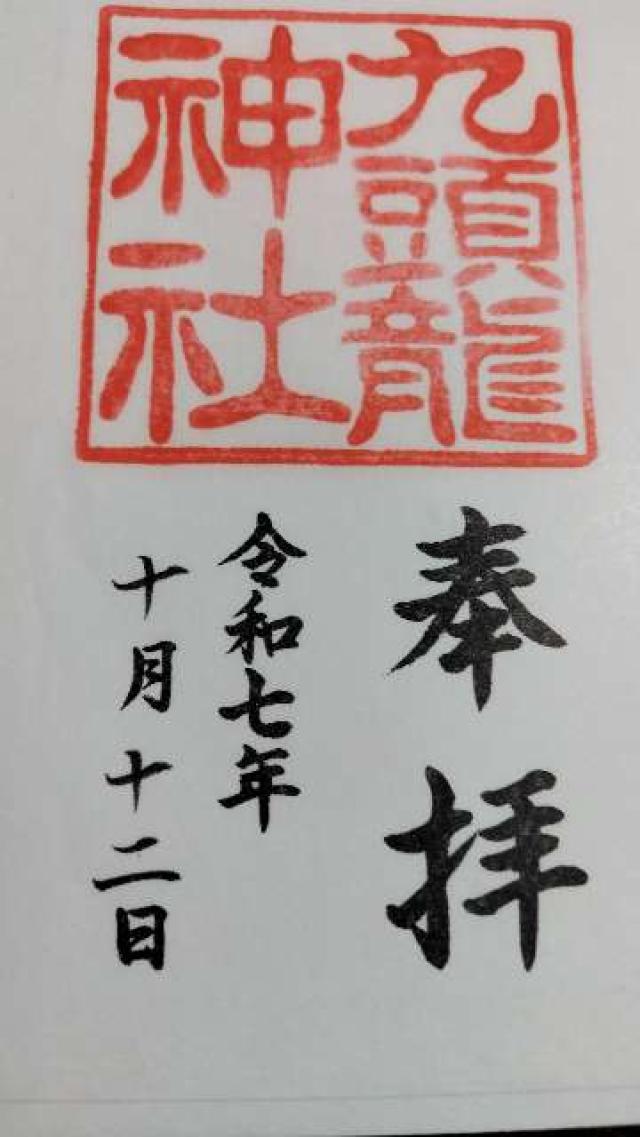 九頭龍
神社
奉拝
令和七年
十月十二日